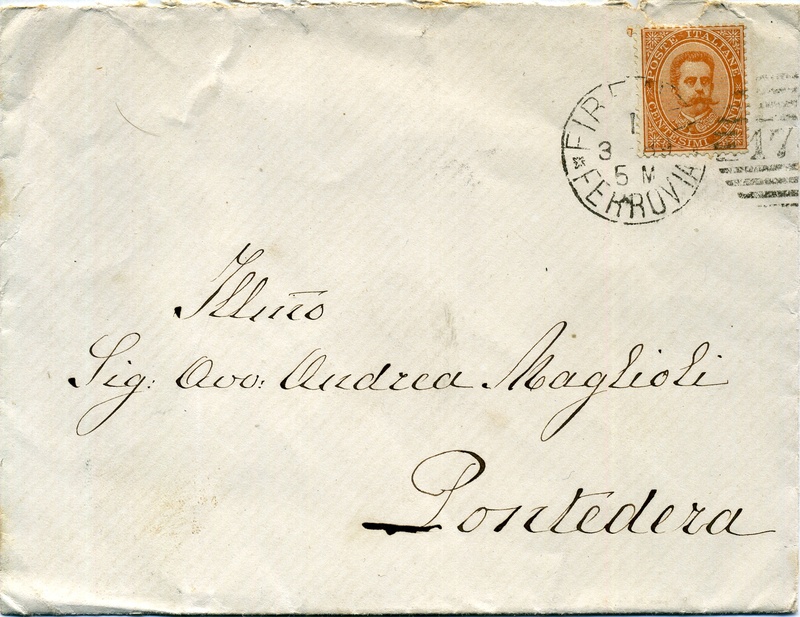 POSTE ITALIANE
CENTESIMI VENTI
FIRENZE
3
5 M
FERROVIA
17
Illmo
Sig: Avv: Andrea Maglioli
Pontedera